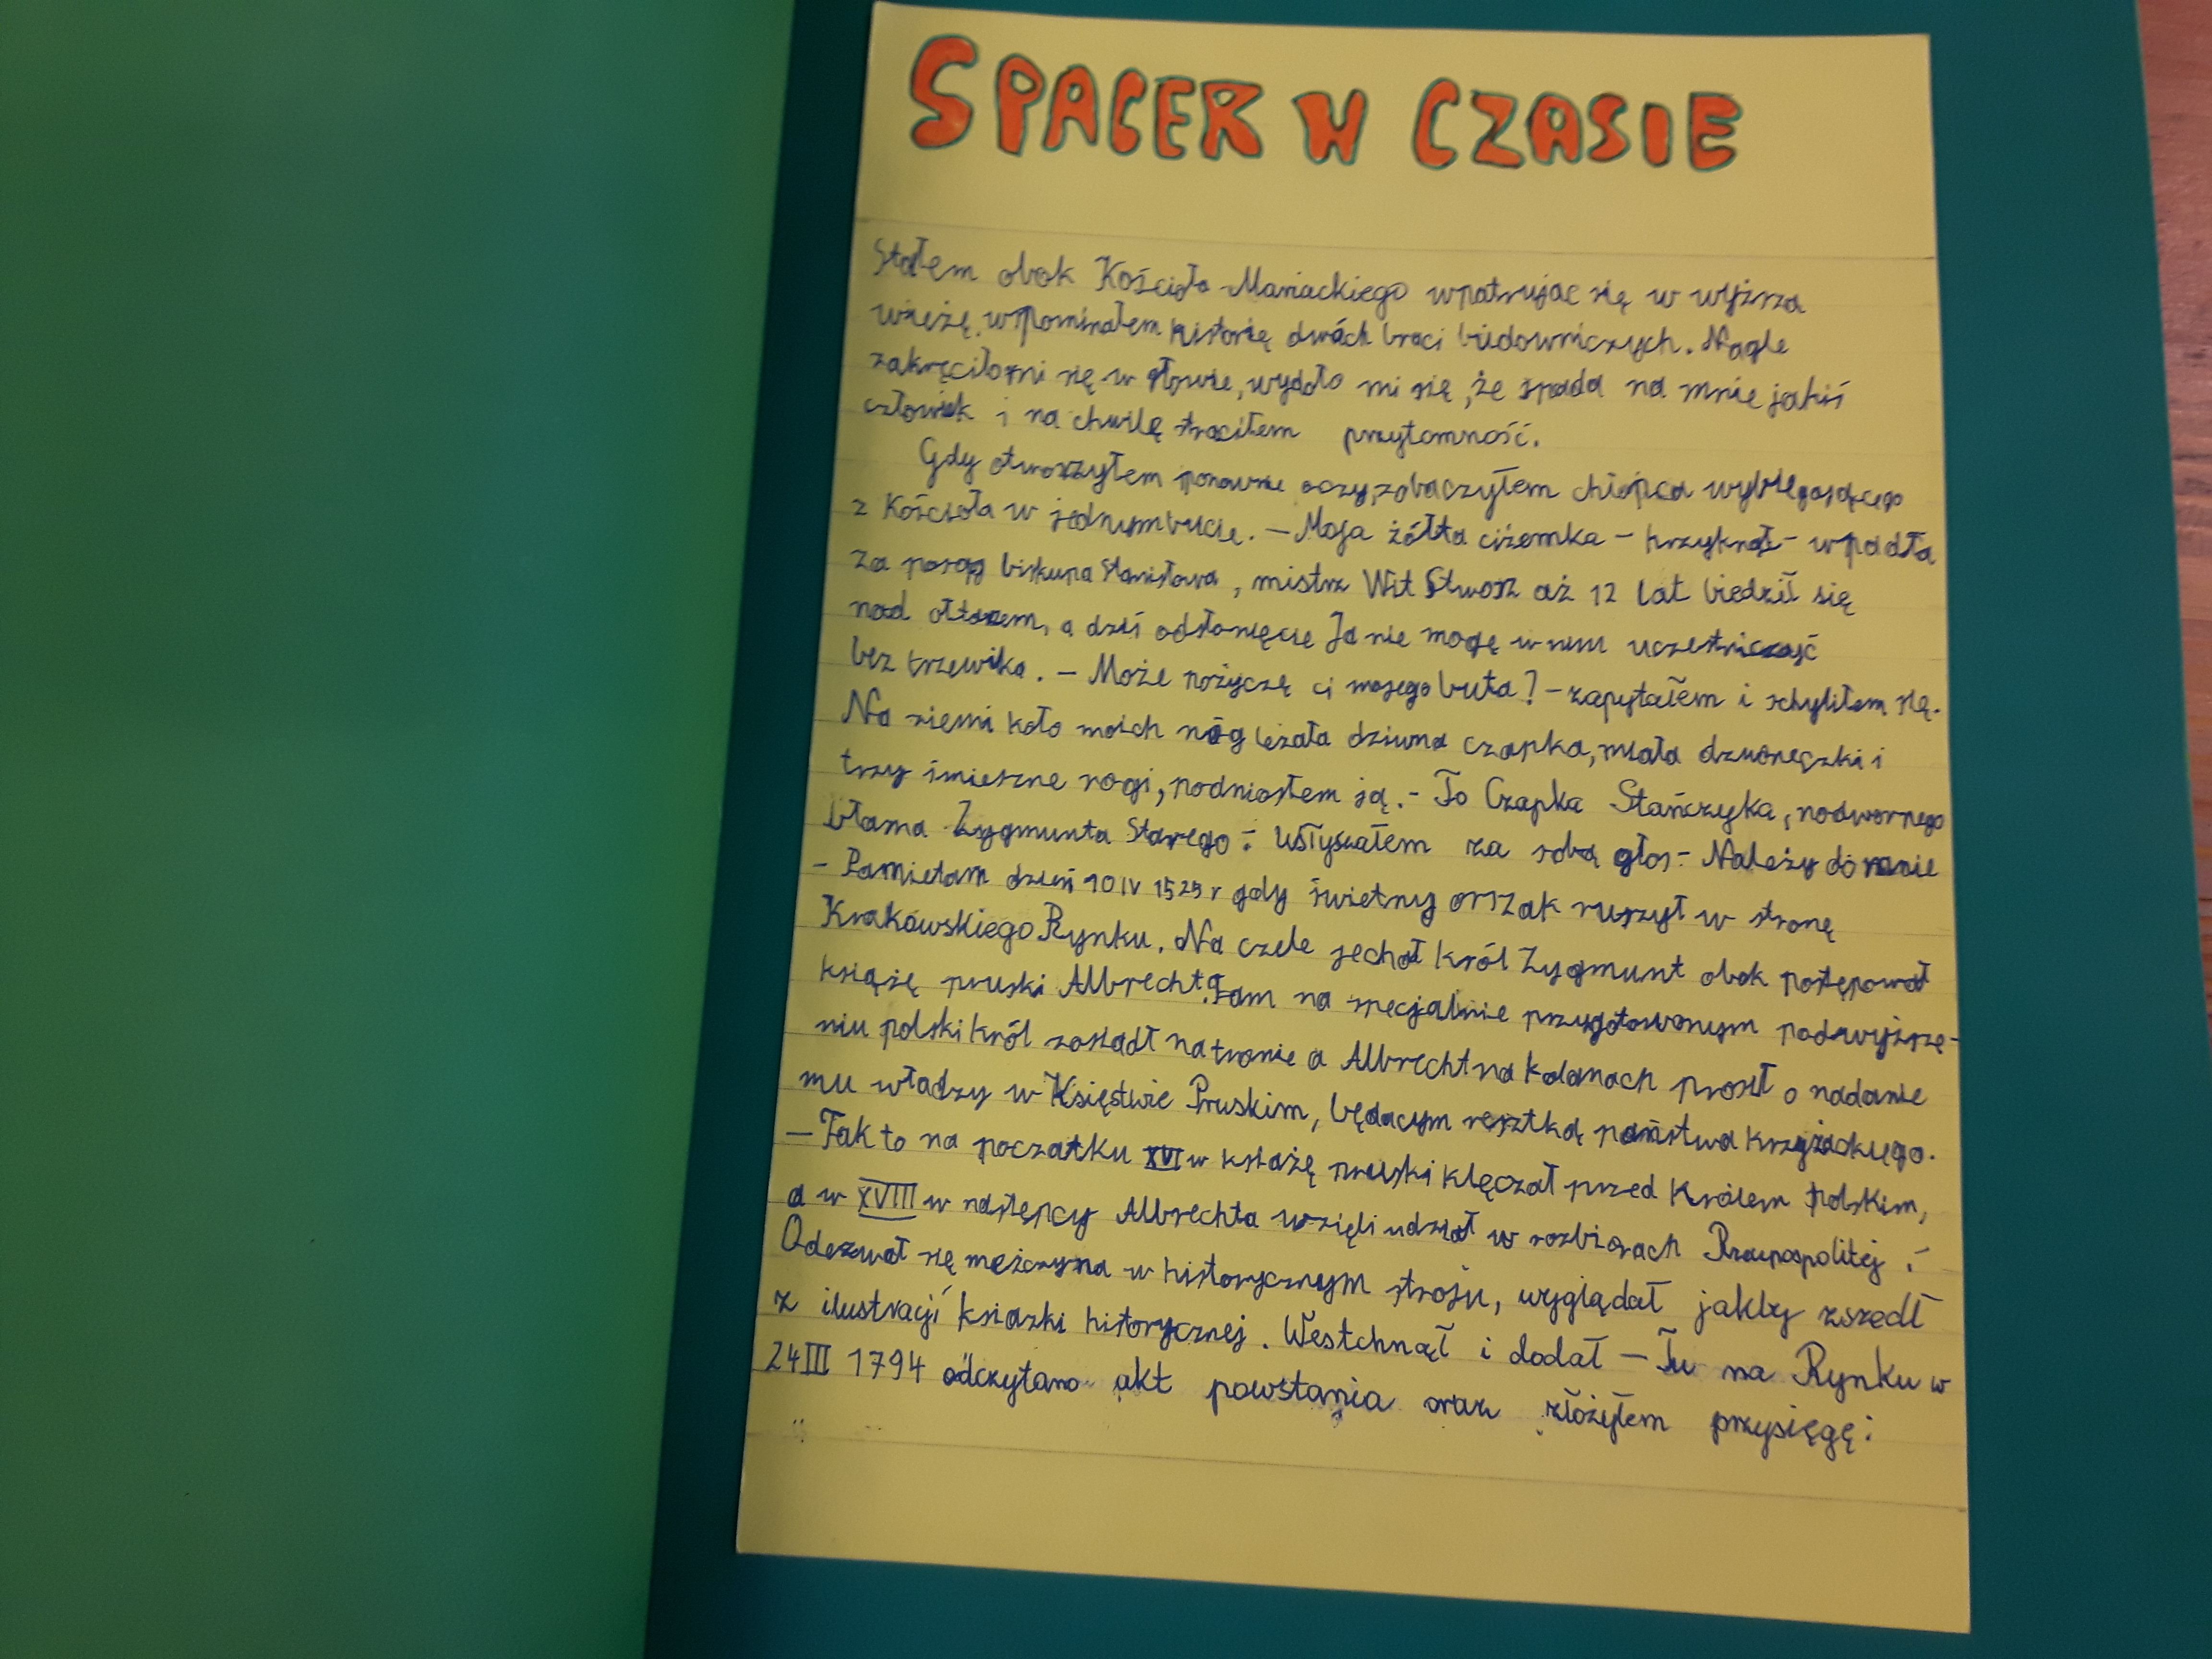 SPACER W CZASIE
Stałem obok Kościoła Mariackiego wpatrując się w wyższa
wieżę, wspominałem historię dwóch braci budowniczych. Nagle
zakręciło mi się w głowie, wydało mi się, że spada na mnie jakiś
człowiek i na chwilę straciłem przytomność.
Gdy otworzyłem ponownie oczy, zobaczyłem chłopca wybiegającego
z Kościoła w jednym bucie. – Moja żółta ciżemka – krzyknął – wpadła
za posąg biskupa Stanisława, mistrz Wit Stwosz aż 12 lat biedził się
nad ołtarzem, a dziś odsłonięcie Ja nie mogę w nim uczestniczyć
bez trzewika. – Może pożyczę ci mojego buta? – zapytałem i schyliłem się.
Na ziemi koło moich nóg leżała dziwna czapka, miała dzwoneczki i
trzy śmieszne rogi, podniosłem ją. – To Czapka Stańczyka, nadwornego
błazna Zygmunta Starego – Usłyszałem za sobą głos – Należy do mnie
– Pamietam dzień 10 IV 1525 r gdy świetny orszak ruszył w stronę
Krakowskiego Rynku. Na czele jechał król Zygmunt obok postępował
książę pruski Albrecht. Tam na specjalnie przygotowanym podwyższe-
niu polski król zasiadł na tronie a Albrecht na kolanach prosił o nadanie
mu władzy w Księstwie Pruskim, będacym resztką państwa krzyżackiego.
– Tak to na poczatku XVI w ksiażę pruski klęczał przed Królem Polskim,
a w XVIII w nastepcy Albrechta wzięli udział w rozbiorach Rzeczpospolitej –
Odezwał się mężczyzna w historycznym stroju, wyglądał jakby zszedł
z ilustracji ksiazki historycznej. Westchnął i dodał – Tu na Rynku w
24 III 1794 odczytano akt powstania oraz złożyłem przysięgę: